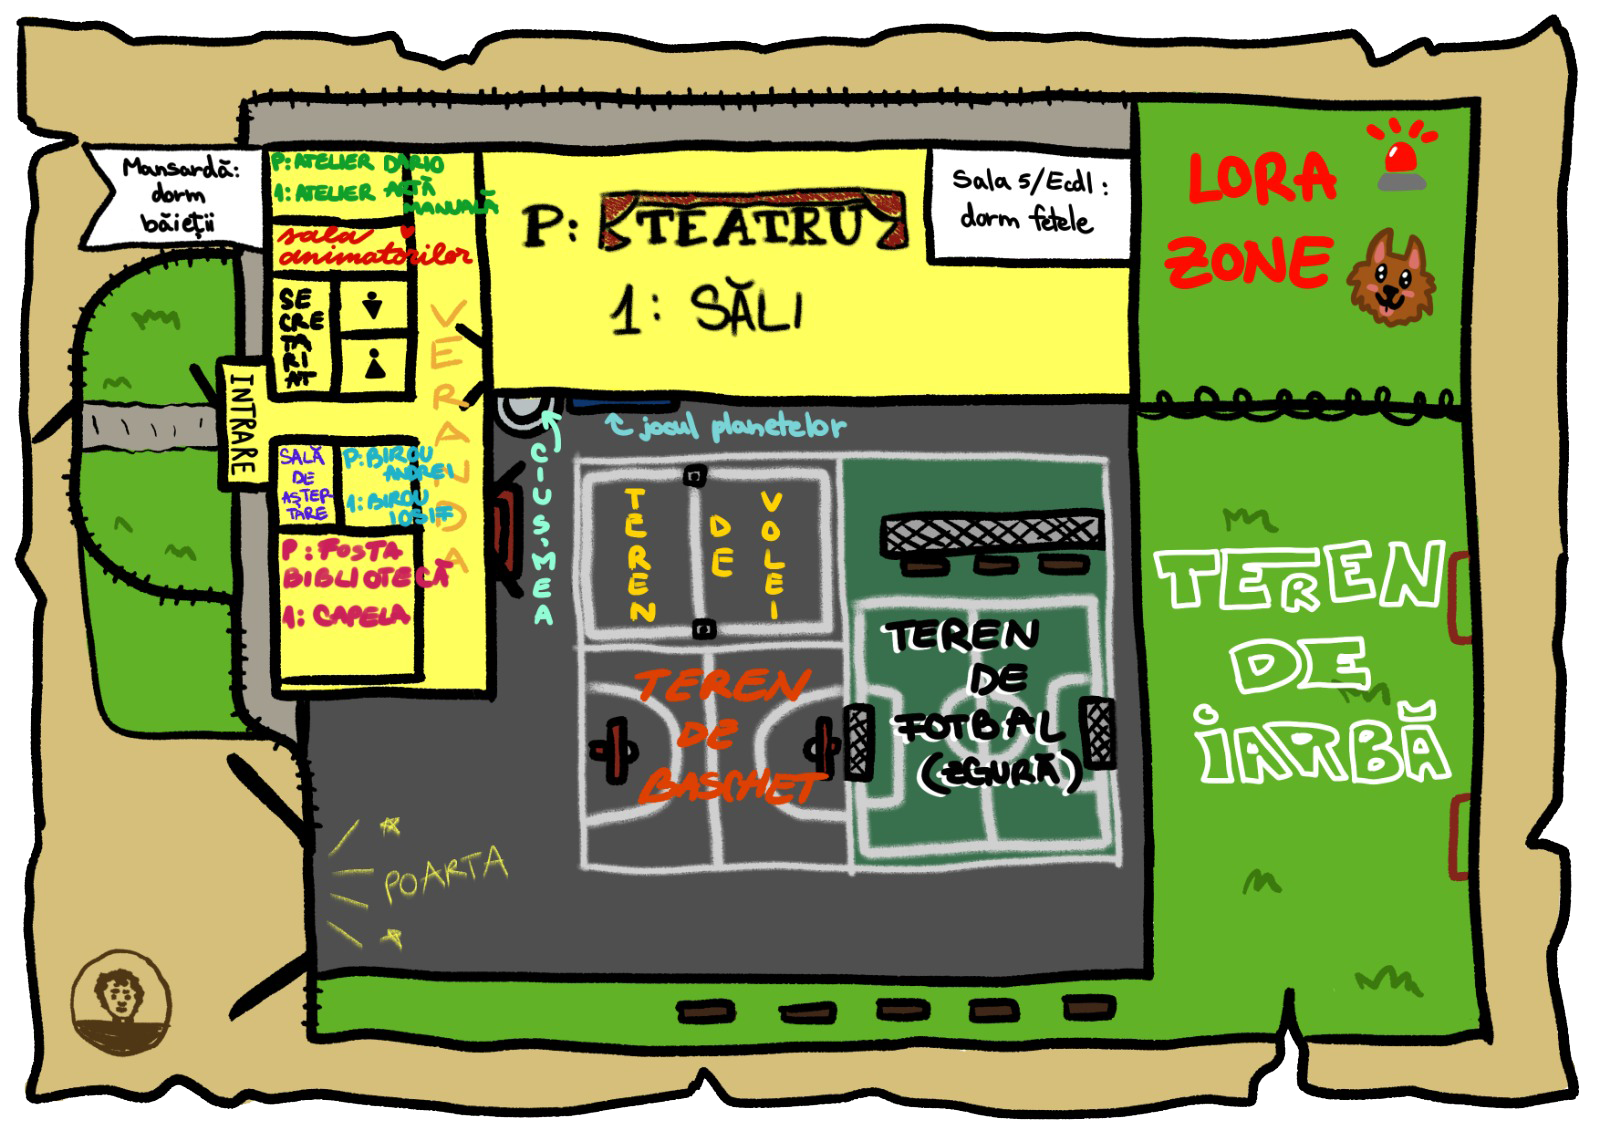 Mansardă:
dorm
băieții
P: ATELIER DARIO
1: ATELIER ARTĂ
MANUALĂ
sala
animatorilor
SE
CRE
TA
RI
AT
VERANDA
INTRARE
SALĂ
DE
AȘTEP-
TARE
P: BIROU
ANDREI
1: BIROU
IOSIF
P: FOSTA
BIBLIOTECĂ
1: CAPELA
P: TEATRU
1: SĂLI
Sala 5/Ecdl:
dorm fetele
LORA
ZONE
jocul planetelor
CIUȘMEA
TEREN
DE
VOLEI
TEREN
DE
BASCHET
TEREN
DE
FOTBAL
(ZGURĂ)
TEREN
DE
IARBĂ
POARTA